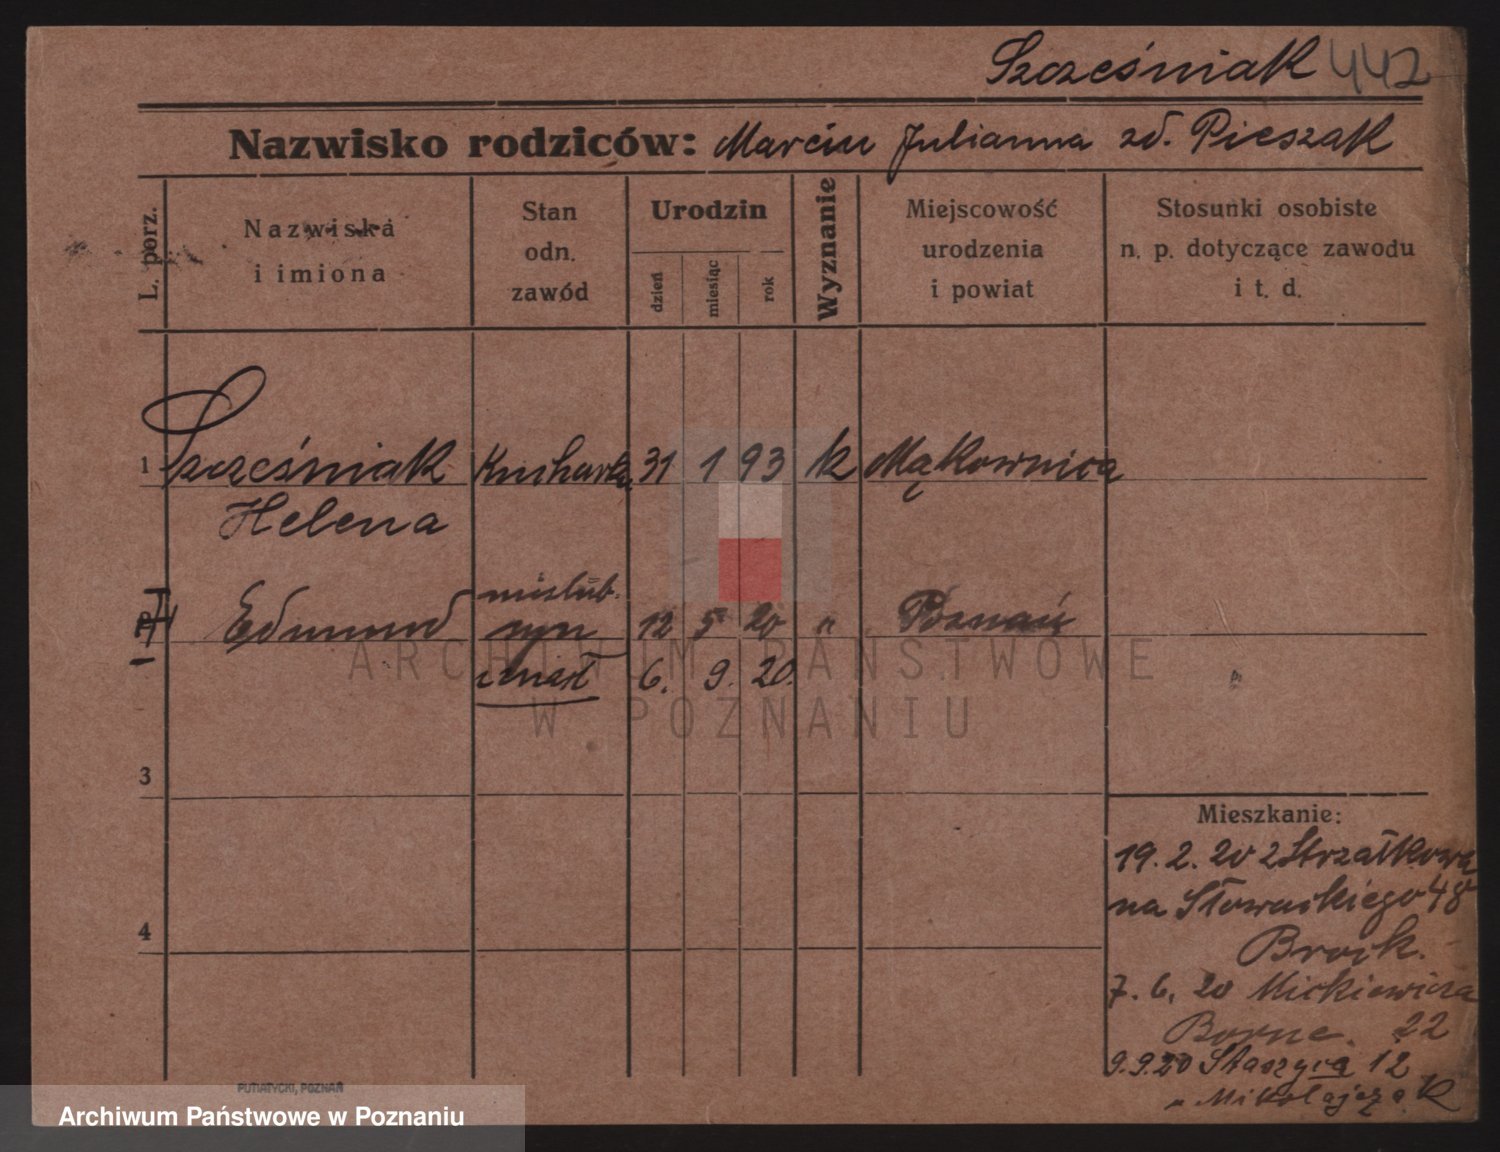 Szcześniak 442
Nazwisko rodziców: Marcin Julianna zd. Pieszak
L. porz.
Nazwiska
i imiona
Stan
odn.
zawód
Urodzin
dzień
miesiąc
rok
Wyznanie
Miejscowość
urodzenia
i powiat
Stosunki osobiste
n. p. dotyczące zawodu
i t. d.
1 Szcześniak Kucharka 31 1 93 k Mąkownica
Helena
nieślub.
Edmund syn 12 5 20 " Poznań
zmarł 6. 9. 20.
ARCHIWUM PAŃSTWOWE
W POZNANIU
3
4
Mieszkanie:
19. 2. 20 z Strzałkowa
na Słowackiego 48
7. 6. 20 Mickiewicza
22
9.9.20 Staszyca 12
" Mikołajczak
PUTIATYCKI, POZNAŃ
Archiwum Państwowe w Poznaniu